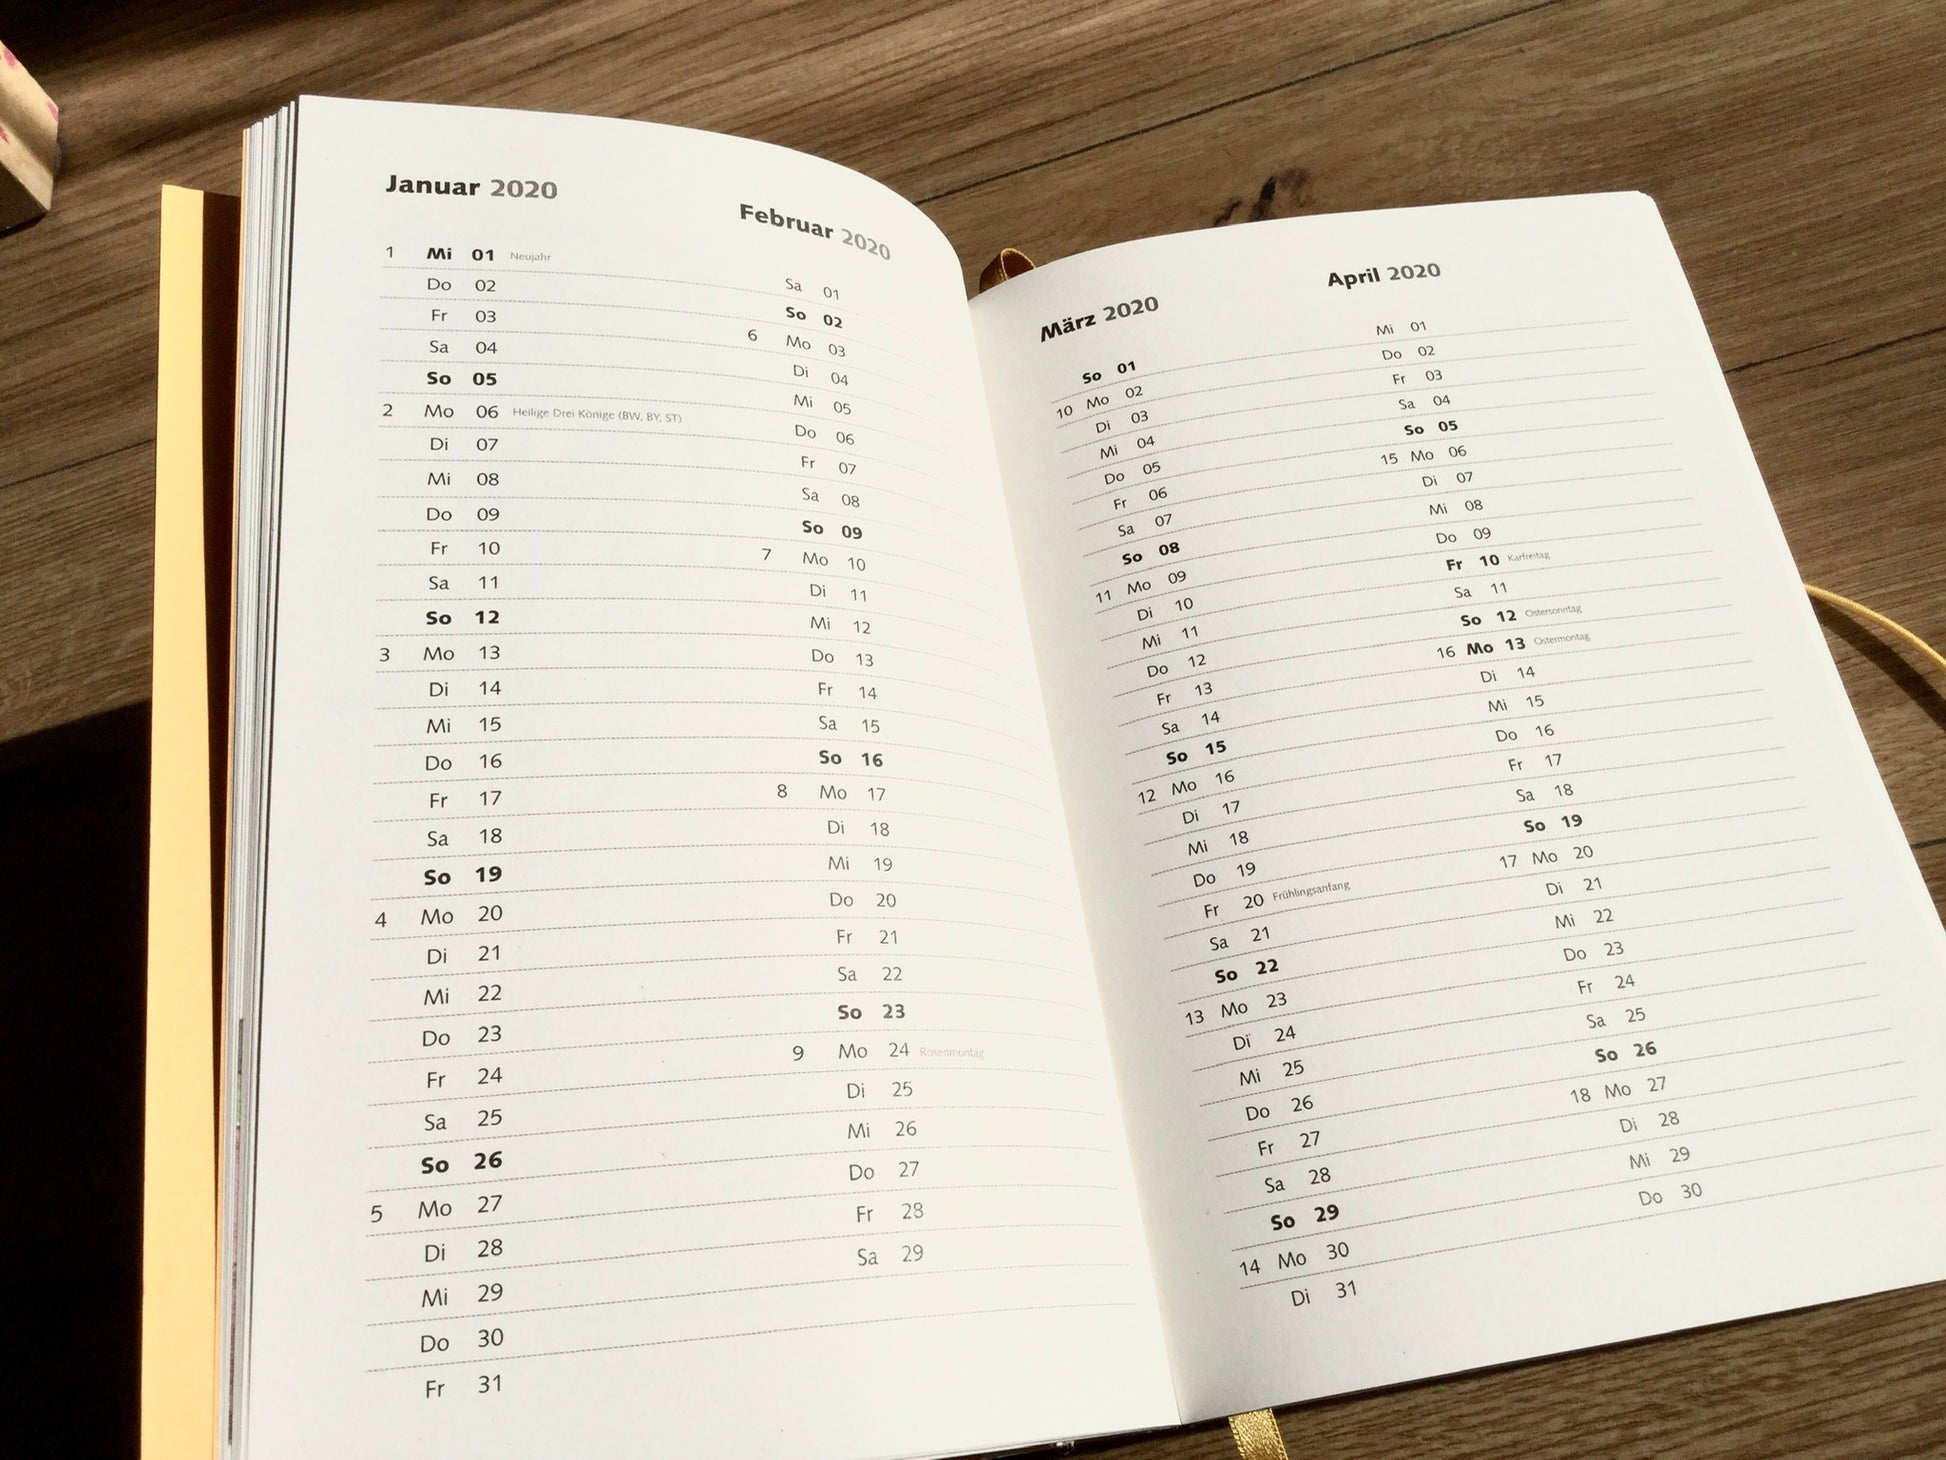 Januar 2020
1 Mi 01 Neujahr
Do 02
Fr 03
Sa 04
So 05
2 Mo 06 Heilige Drei Könige (BW, BY, ST)
Di 07
Mi 08
Do 09
Fr 10
Sa 11
So 12
3 Mo 13
Di 14
Mi 15
Do 16
Fr 17
Sa 18
So 19
4 Mo 20
Di 21
Mi 22
Do 23
Fr 24
Sa 25
So 26
5 Mo 27
Di 28
Mi 29
Do 30
Fr 31
Februar 2020
Sa 01
So 02
6 Mo 03
Di 04
Mi 05
Do 06
Fr 07
Sa 08
So 09
7 Mo 10
Di 11
Mi 12
Do 13
Fr 14
Sa 15
So 16
8 Mo 17
Di 18
Mi 19
Do 20
Fr 21
Sa 22
So 23
9 Mo 24 Rosenmontag
Di 25
Mi 26
Do 27
Fr 28
Sa 29
März 2020
So 01
10 Mo 02
Di 03
Mi 04
Do 05
Fr 06
Sa 07
So 08
11 Mo 09
Di 10
Mi 11
Do 12
Fr 13
Sa 14
So 15
12 Mo 16
Di 17
Mi 18
Do 19
Fr 20 Frühlingsanfang
Sa 21
So 22
13 Mo 23
Di 24
Mi 25
Do 26
Fr 27
Sa 28
So 29
14 Mo 30
Di 31
April 2020
Mi 01
Do 02
Fr 03
Sa 04
So 05
15 Mo 06
Di 07
Mi 08
Do 09
Fr 10 Karfreitag
Sa 11
So 12 Ostersonntag
16 Mo 13 Ostermontag
Di 14
Mi 15
Do 16
Fr 17
Sa 18
So 19
17 Mo 20
Di 21
Mi 22
Do 23
Fr 24
Sa 25
So 26
18 Mo 27
Di 28
Mi 29
Do 30